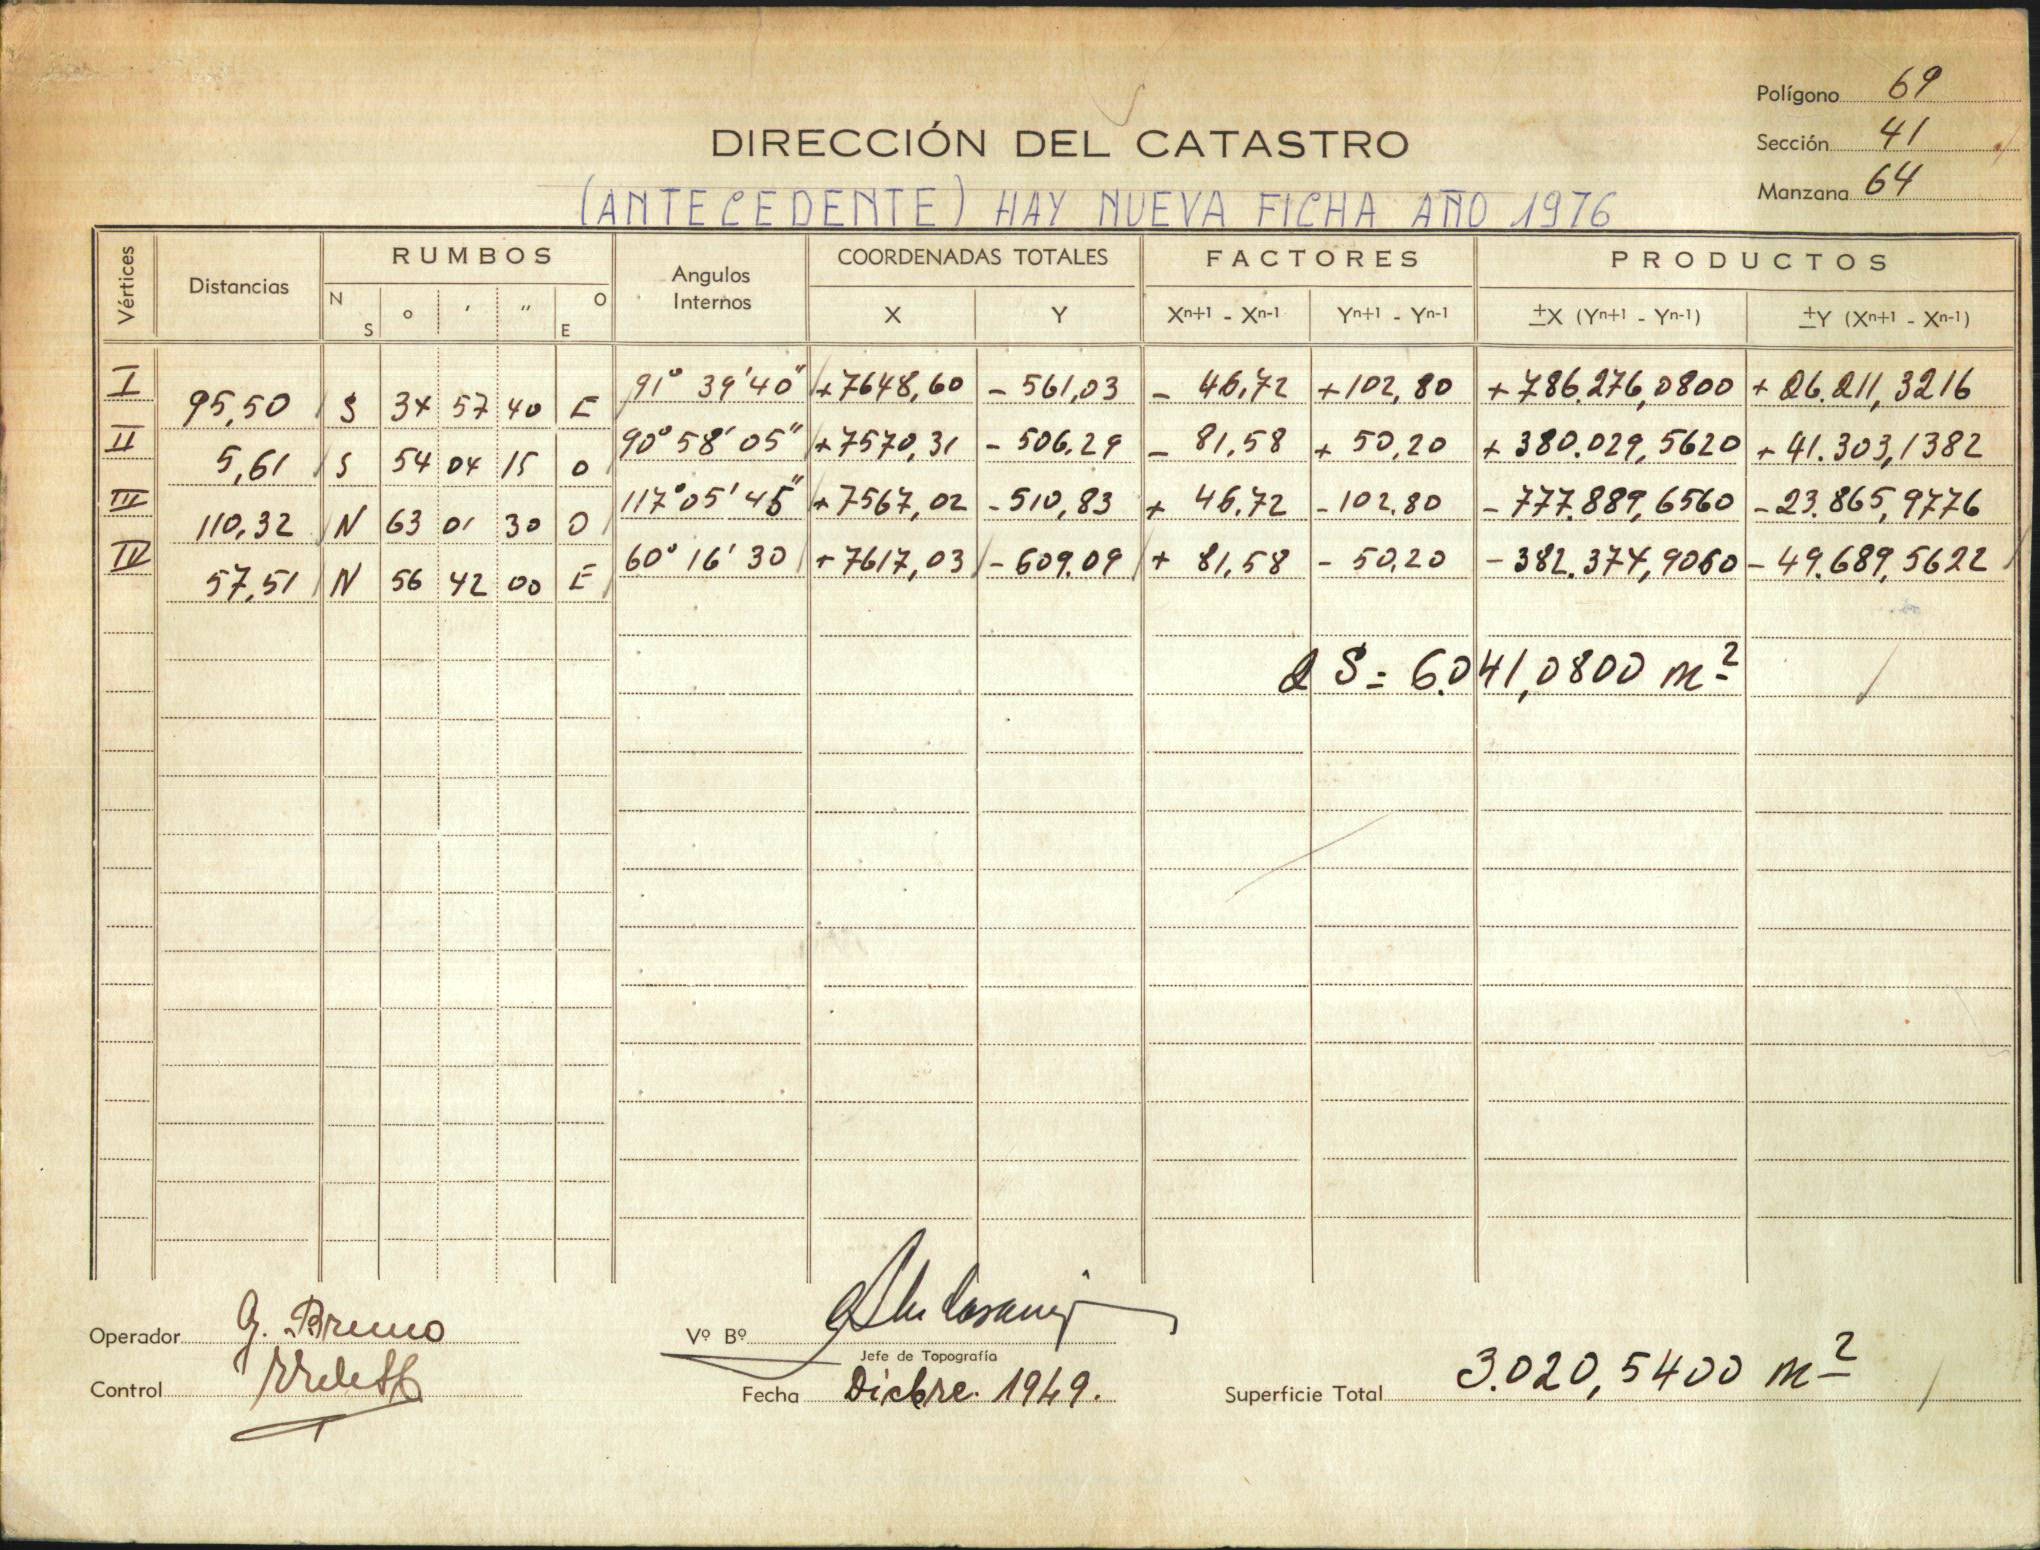 Polígono 69
DIRECCIÓN DEL CATASTRO
Sección 41
Manzana 64
(ANTECEDENTE) HAY NUEVA FICHA AÑO 1976
Vértices Distancias RUMBOS Angulos Internos COORDENADAS TOTALES FACTORES PRODUCTOS
N S ° ′ ″ O E X Y Xⁿ⁺¹ - Xⁿ⁻¹ Yⁿ⁺¹ - Yⁿ⁻¹ ±X (Yⁿ⁺¹ - Yⁿ⁻¹) ±Y (Xⁿ⁺¹ - Xⁿ⁻¹)
I 91° 39' 40" +7648,60 - 561,03 - 46,72 +102,80 +786.276,0800 + 26.211,3216
95,50 S 34 57 40 E
II 90° 58' 05" +7570,31 - 506,29 - 81,58 + 50,20 +380.029,5620 + 41.303,1382
5,61 S 54 04 15 O
III 117° 05' 45" +7567,02 -510,83 + 46,72 -102,80 -777.889,6560 -23.865,9776
110,32 N 63 01 30 O
IV 60° 16' 30 +7617,03 -609.09 + 81,58 - 50,20 -382.374,9060 - 49.689,5622
57,51 N 56 42 00 E
2 S = 6.041,0800 m²
Operador G. Bruno
Vº Bº
Jefe de Topografía
Control
Fecha Dicbre. 1949.
Superficie Total 3.020,5400 m²